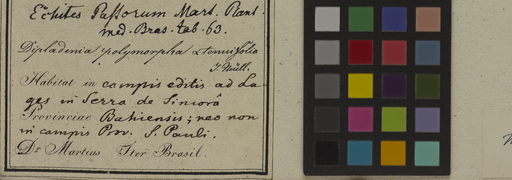 Echites Passorum Mart. Plant.
med. Bras. tab. 63.
Dipladenia polymorpha α tenuifolia
J. Müll.
Habitat in campis editis ad La-
ges in Serra de Sincorá
Provinciae Bahiensis; nec non
in campis Prov. S. Pauli.
Dr. Martius Iter Brasil.